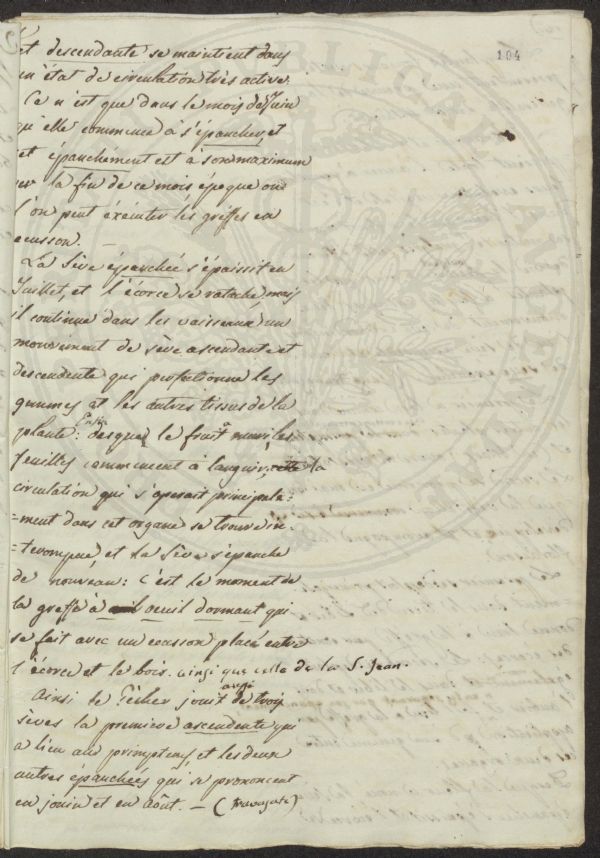 104
et descendante se maintient dans
un état de circulation très active.
Ce n'est que dans le mois de Juin
qu'elle commence à s'épancher, et
cet épanchément est à son maximum
ver la fin de ce mois époque où
l'on peut éxécuter les gréffes en
ecusson. —
La Sève épanchée s'épaissit en
Juillet, et l'écorce se ratache, mais
il continue dans les vaisseaux un
mouvement de sève ascendante et
descendente qui perfectionne les
gemmes et les autres tissus de la
plante: Enfin desque le fruit a muri les
feuilles commencent à languir, cette la
circulation qui s'operait principale=
=ment dans cet organe se trouve in-
=terompue et la Sève s'épanche
de nouveau: C'est le moment de
la greffe à oeuil dormant qui
se fait avec un ecusson placé entre
l'écorce et le bois. ainsi que celle de la S. Jean.
Ainsi le Pêcher jouit de trois
sèves la premiere ascendente qui
a lieu au primptems, et les deux
autres épanchées qui se prononcent
en jouin et en Août. —